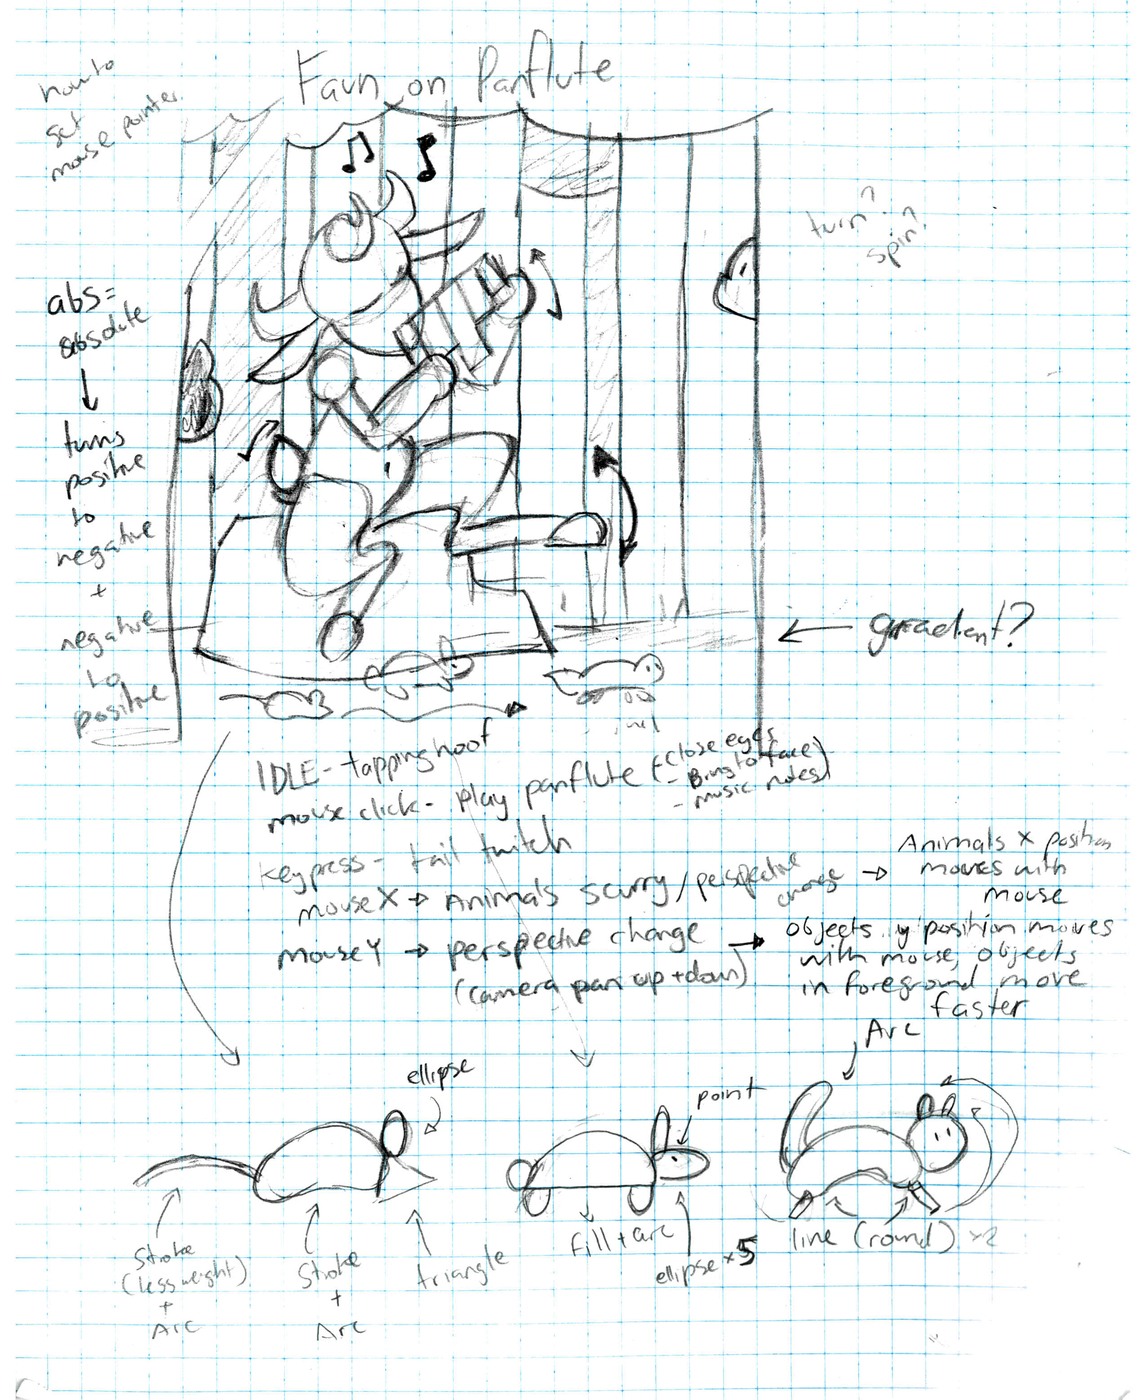 Faun on Panflute
how to
set
mouse pointer
turn?
spin?
abs=
absolute
turns
positive
to
negative
+
negative
to
positive
gradient?
IDLE - tapping hoof
mouse click - play panflute (- close eyes
- Bring to face
- music notes)
Keypress - tail twitch
mouse X → Animals scurry / perspective
change → Animals x position
moves with
mouse
mouse Y → perspective change
(camera pan up + down) → objects y position moves
with mouse, objects
in foreground move
faster
ellipse
Stroke
(less weight)
+
Arc
Stroke
+
Arc
triangle
point
fill + arc
ellipse x 5
Arc
line (round) x2